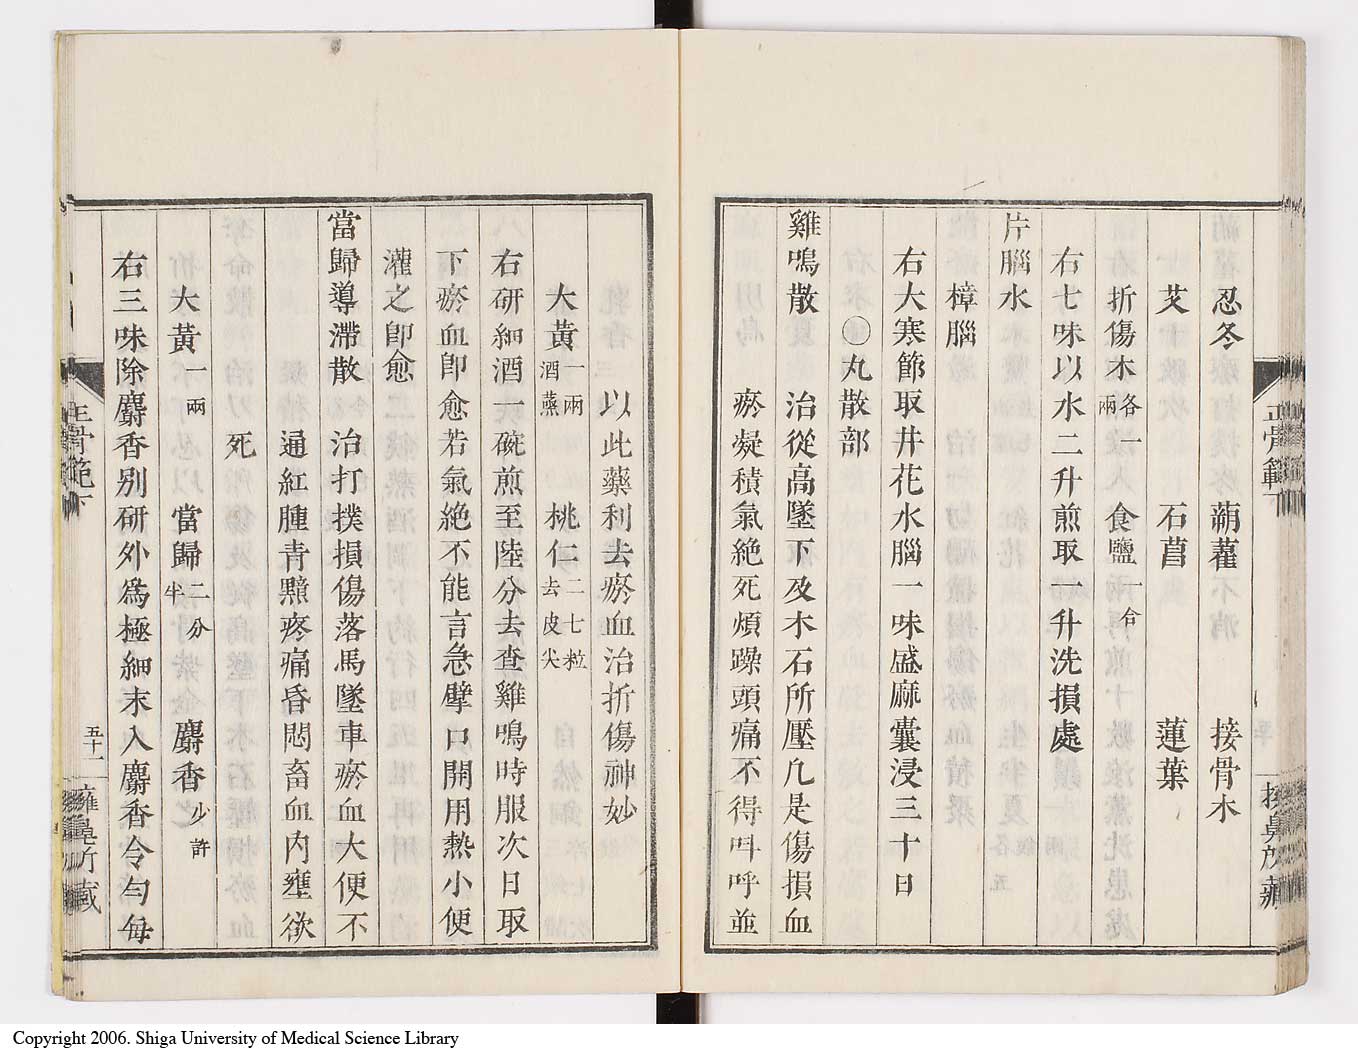 忍冬　蒴藋　接骨木
艾　石菖　蓮葉
折傷木各一兩　食鹽一合
右七味以水二升煎取一升洗損處
片腦水
樟腦
右大寒節取井花水腦一味盛麻囊浸三十日
〇丸散部
雞鳴散　治從高墜下及木石所壓凡是傷損血
瘀凝積氣絶死煩躁頭痛不得呌呼並
以此藥利去瘀血治折傷神妙
大黃一兩酒蒸　桃仁二七粒去皮尖
右研細酒一碗煎至陸分去查雞鳴時服次日取
下瘀血卽愈若氣絶不能言急擘口開用熱小便
灌之卽愈
當歸導滯散　治打撲損傷落馬墜車瘀血大便不
通紅腫青黯疼痛昏悶畜血內壅欲
死
大黃一兩　當歸二分半　麝香少許
右三味除麝香别研外爲極細末入麝香令勻每
正骨範下
五十一
Copyright 2006. Shiga University of Medical Science Library